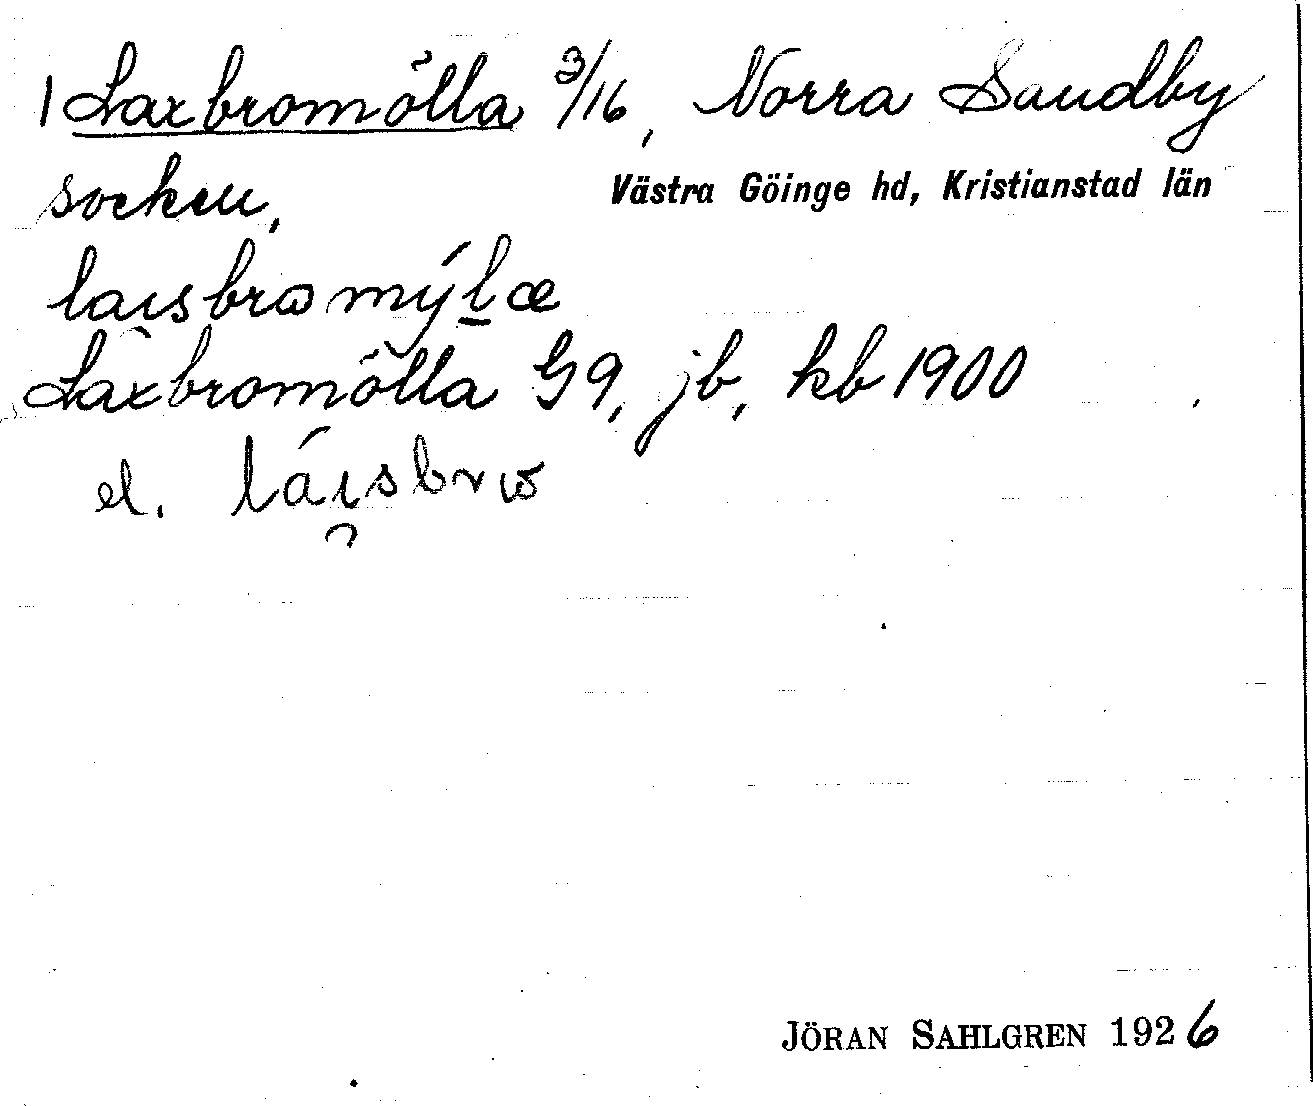 1 Laxbromölla 3/16, Norra Sandby
socken, Västra Göinge hd, Kristianstad län
laısbrꞷmýlæ
Laxbromölla G9, jb, kb 1900
el. láısbrꞷ
JÖRAN SAHLGREN 1926